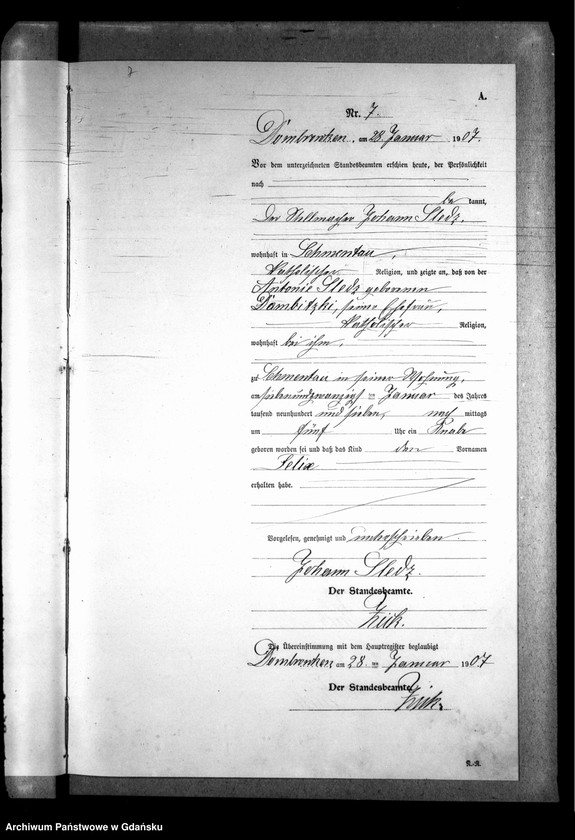 A.
Nr. 7.
Dombrowken, am 28. Januar 1907.
Vor dem unterzeichneten Standesbeamten erschien heute, der Persönlichkeit
nach
be kannt,
der Stellmacher Johann Sledz,
wohnhaft in Schmentau,
katholischer Religion, und zeigte an, daß von der
Antonie Sledz geborenen
Dambitzki, seine Ehefrau,
katholischer Religion,
wohnhaft bei ihm,
zu Schmentau in seiner Wohnung,
am siebenundzwanzigsten Januar des Jahres
tausend neunhundert und sieben, nach mittags
um fünf Uhr ein Knabe
geboren worden sei und daß das Kind den Vornamen
Felix
erhalten habe.
Vorgelesen, genehmigt und unterschrieben
Johann Sledz.
Der Standesbeamte.
Die Übereinstimmung mit dem Hauptregister beglaubigt
Dombrowken am 28. ten Januar 1907
Der Standesbeamte.
Archiwum Państwowe w Gdańsku